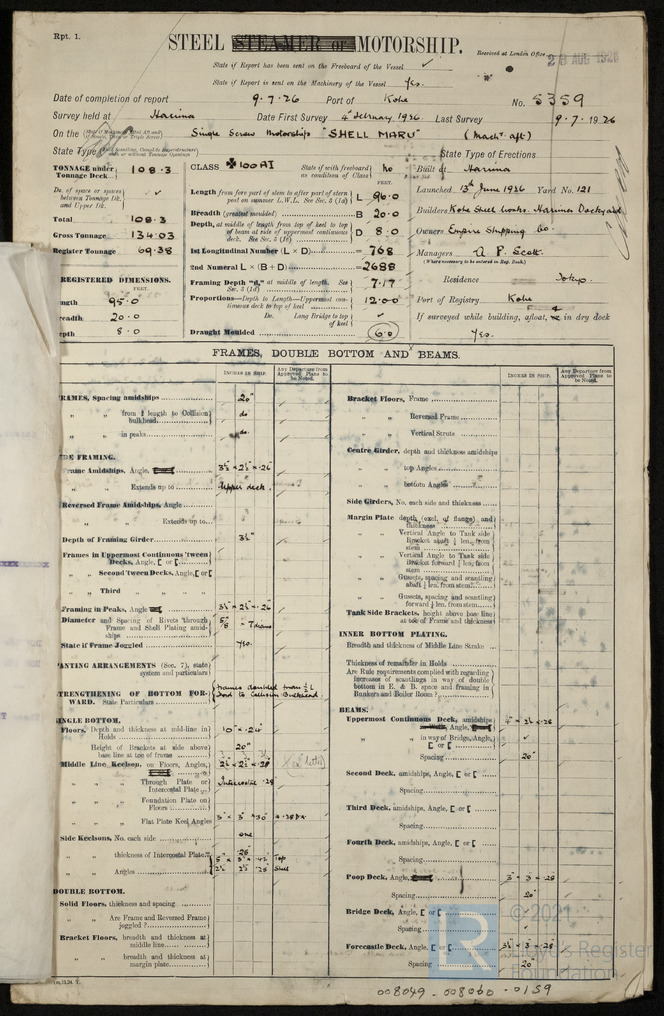 Rpt. 1.
STEEL STEAMER OR MOTORSHIP.
Received at London Office 28 AUG 1926
State if Report has been sent on the Freeboard of the Vessel ✓
State if Report is sent on the Machinery of the Vessel Yes.
Date of completion of report 9.7.26 Port of Kobe No. 5359
Survey held at Harima Date First Survey 4th February, 1926 Last Survey 9.7.1926
On the Single Screw Motorship "SHELL MARU" (Machy. aft)
State Type State Type of Erections
TONNAGE under Tonnage Deck 108.3
Do. of space or spaces between Tonnage Dk. and Upper Dk. ✓
Total 108.3
Gross Tonnage 134.03
Register Tonnage 69.38
REGISTERED DIMENSIONS.
FEET.
ength 95.0
readth 20.0
epth 8.0
CLASS ✠ 100 A1 State if with freeboard as condition of Class no
FEET.
Length from fore part of stem to after part of stern post on summer L.W.L. See Sec. 3 (1a) L 96.0
Breadth (greatest moulded) B 20.0
Depth, at middle of length from top of keel to top of beam at side of uppermost continuous deck. See Sec. 3 (1c) D 8.0
1st Longitudinal Number (L × D) = 768
2nd Numeral L × (B + D) = 2688
Framing Depth "d," at middle of length. See Sec. 3 (1d) 7.17
Proportions—Depth to Length—Uppermost continuous deck to top of keel 12.00
Do. Long Bridge to top of keel ✓
Draught Moulded 6.0
Built at Harima
Launched 13th June 1926 Yard No. 121
Builders Kobe Steel Works. Harima Dockyard
Owners Empire Shipping Co.
Managers A. P. Scott.
(Where necessary to be entered in Reg. Book.)
Residence Tokyo.
Port of Registry Kobe
If surveyed while building, afloat, & in dry dock
Yes.
FRAMES, DOUBLE BOTTOM AND BEAMS.
INCHES IN SHIP. Any Departure from Approved Plans to be Noted.
INCHES IN SHIP. Any Departure from Approved Plans to be Noted.
RAMES, Spacing amidships 20"
" " from ⅕ length to Collision bulkhead do
" " in peaks do
DE FRAMING.
rame Amidships, Angle, 3½ × 2½ × .26
" " Extends up to Upper deck.
Reversed Frame Amidships, Angle
" " Extends up to
Depth of Framing Girder 3½
Frames in Uppermost Continuous 'tween Decks, Angle, [ or [
" " Second 'tween Decks, Angle, [ or [
" " Third " "
Framing in Peaks, Angle 3½ × 2½ × .26
Diameter and Spacing of Rivets through Frame and Shell Plating amidships 5/8" - 7 diams
State if Frame Joggled Yes.
ANTING ARRANGEMENTS (Sec. 7), state system and particulars
STRENGTHENING OF BOTTOM FORWARD. State Particulars
INGLE BOTTOM.
Floors, Depth and thickness at mid-line in Holds 10" × .24
Height of Brackets at side above base line at toe of frame 20"
Middle Line Keelson, on Floors, Angles, 2½ × 2½ × .28
" " Through Plate or Intercostal Plate Intercostal .28
" " Foundation Plate on Floors
" " Flat Plate Keel Angles 3" × 3" × .30
Side Keelsons, No. each side one
" " thickness of Intercostal Plate .26
" " Angles Top
Shell
DOUBLE BOTTOM.
Solid Floors, thickness and spacing
" " Are Frame and Reversed Frame joggled ?
Bracket Floors, breadth and thickness at middle line
" " breadth and thickness at margin plate
Bracket Floors, Frame
" " Reversed Frame
" " Vertical Struts
Centre Girder, depth and thickness amidships
" " top Angles
" " bottom Angles
Side Girders, No. each side and thickness
Margin Plate depth (excl. of flange) and thickness
" " Vertical Angle to Tank side Bracket abaft ¼ len. from stem
" " Vertical Angle to Tank side Bracket forward ¼ len. from stem
" " Gussets, spacing and scantling abaft ¼ len. from stem
" " Gussets, spacing and scantling forward ¼ len. from stem
Tank Side Brackets, height above base line at toe of Frame and thickness
INNER BOTTOM PLATING.
Breadth and thickness of Middle Line Strake
Thickness of remainder in Holds
Are Rule requirements complied with regarding increases of scantlings in way of double bottom in E. & B. space and framing in Bunkers and Boiler Room ?
BEAMS.
Uppermost Continuous Deck, amidships Angle,
" " in way of Bridge, Angle, [ or [ ✓
Spacing 20"
Second Deck, amidships, Angle, [ or [
Spacing
Third Deck, amidships, Angle, [ or [
Spacing
Fourth Deck, amidships, Angle, [ or [
Spacing
Poop Deck, Angle, 3" × 3 × .28
Spacing 20"
Bridge Deck, Angle, [ or [
Spacing ✓
Forecastle Deck, Angle, [ or [ 3½ × 3 × .28
Spacing 20"
© 2021
Lloyd's Register
Foundation
008049 - 008060 - 0159